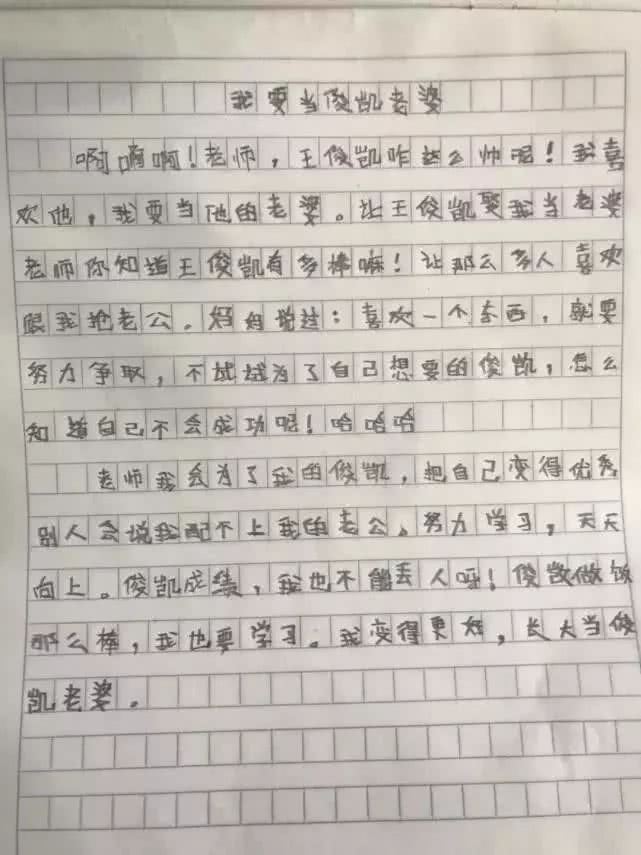 我要当俊凯老婆
啊啊啊！老师，王俊凯咋这么帅呢！我喜
欢他，我要当他的老婆。让王俊凯娶我当老婆
老师你知道王俊凯有多棒嘛！让那么多人喜欢
跟我抢老公。妈妈说过：喜欢一个东西，就要
努力争取，不试试为了自己想要的俊凯，怎么
知道自己不会成功呢！哈哈哈
老师我会为了我的俊凯，把自己变得优秀
别人会说我配不上我的老公。努力学习，天天
向上。俊凯成绩，我也不能丢人呀！俊凯做饭
那么棒，我也要学习。我变得更好，长大当俊
凯老婆。